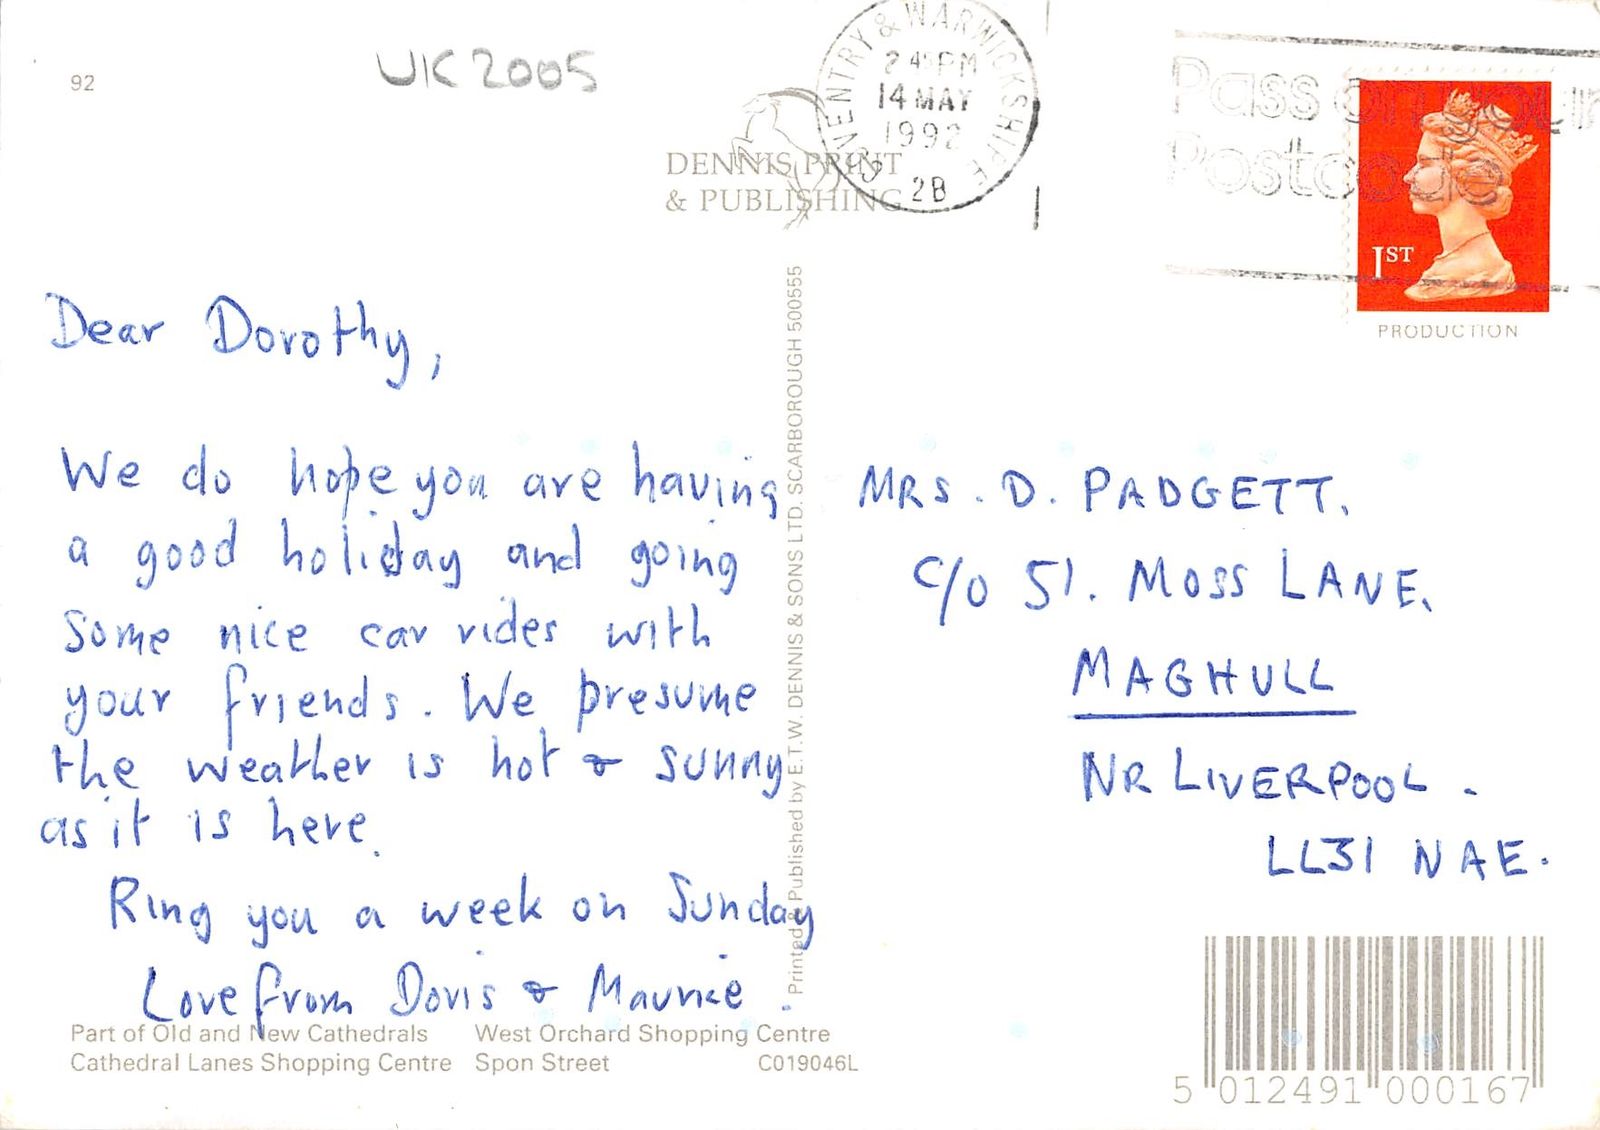 92
UK 2005
COVENTRY & WARWICKSHIRE
2 45 PM
14 MAY
1992
2B
Pass on your
Postcode
DENNIS PRINT
& PUBLISHING
1ST
PRODUCTION
Dear Dorothy,
We do hope you are having
a good holiday and going
some nice car rides with
your friends. We presume
the weather is hot & sunny
as it is here.
Ring you a week on Sunday
Love from Doris & Maurice.
Printed & Published by E.T.W. DENNIS & SONS LTD. SCARBOROUGH 500555
MRS. D. PADGETT.
C/O 51. MOSS LANE.
MAGHULL
NR LIVERPOOL.
LL31 NAE.
Part of Old and New Cathedrals West Orchard Shopping Centre
Cathedral Lanes Shopping Centre Spon Street C019046L
5 012491 000167